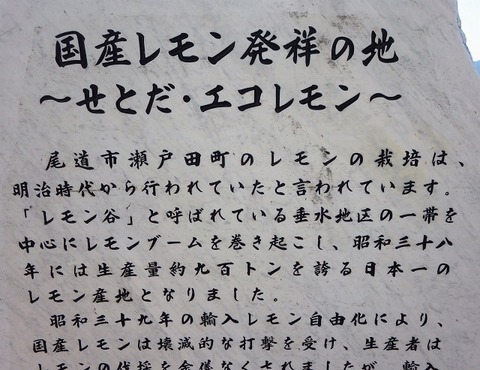 国産レモン発祥の地
～せとだ・エコレモン～
尾道市瀬戸田町のレモンの栽培は、
明治時代から行われていたと言われています。
「レモン谷」と呼ばれている垂水地区の一帯を
中心にレモンブームを巻き起こし、昭和三十八
年には生産量約九百トンを誇る日本一の
レモン産地となりました。
昭和三十九年の輸入レモン自由化により、
国産レモンは壊滅的な打撃を受け、生産者は
レモンの伐採を余儀なくされましたが、輸入